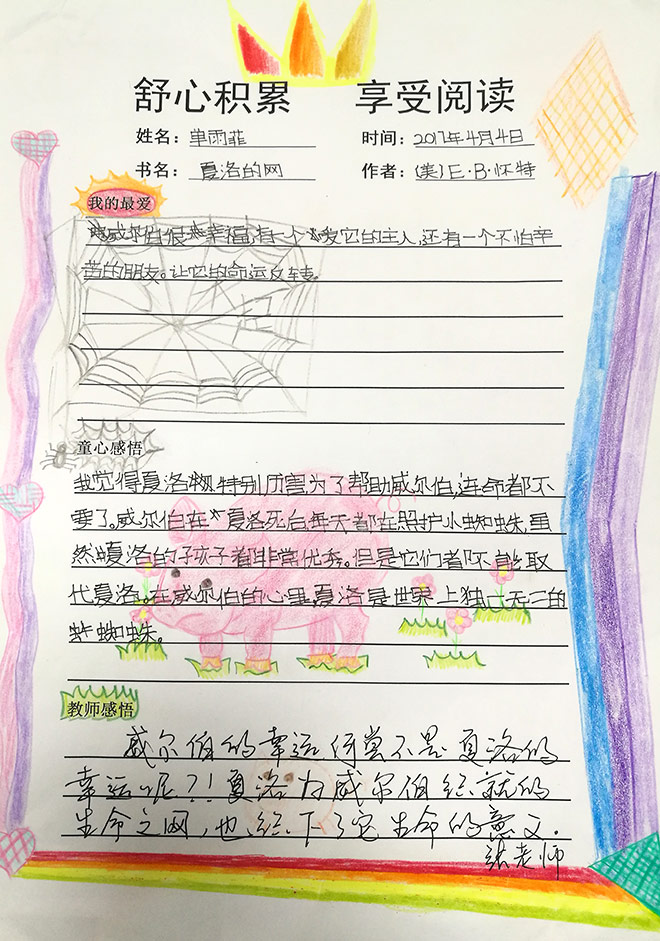 舒心积累 享受阅读
姓名：单雨菲 时间：2017年4月4日
书名：夏洛的网 作者：(美)E·B·怀特
我的最爱
威尔伯很幸福,有一个爱它的主人,还有一个不怕辛
苦的朋友。让它的命运反转。
童心感悟
我觉得夏洛特别厉害为了帮助威尔伯,连命都不
要了。威尔伯在夏洛死后每天都在照护小蜘蛛,虽
然夏洛的孩子都非常优秀。但是它们都不能取
代夏洛,在威尔伯的心里夏洛是世界上独一无二的
蜘蛛。
教师感悟
威尔伯的幸运,何尝不是夏洛的
幸运呢?!夏洛为威尔伯织就的
生命之网,也织下了它生命的意义.
张老师